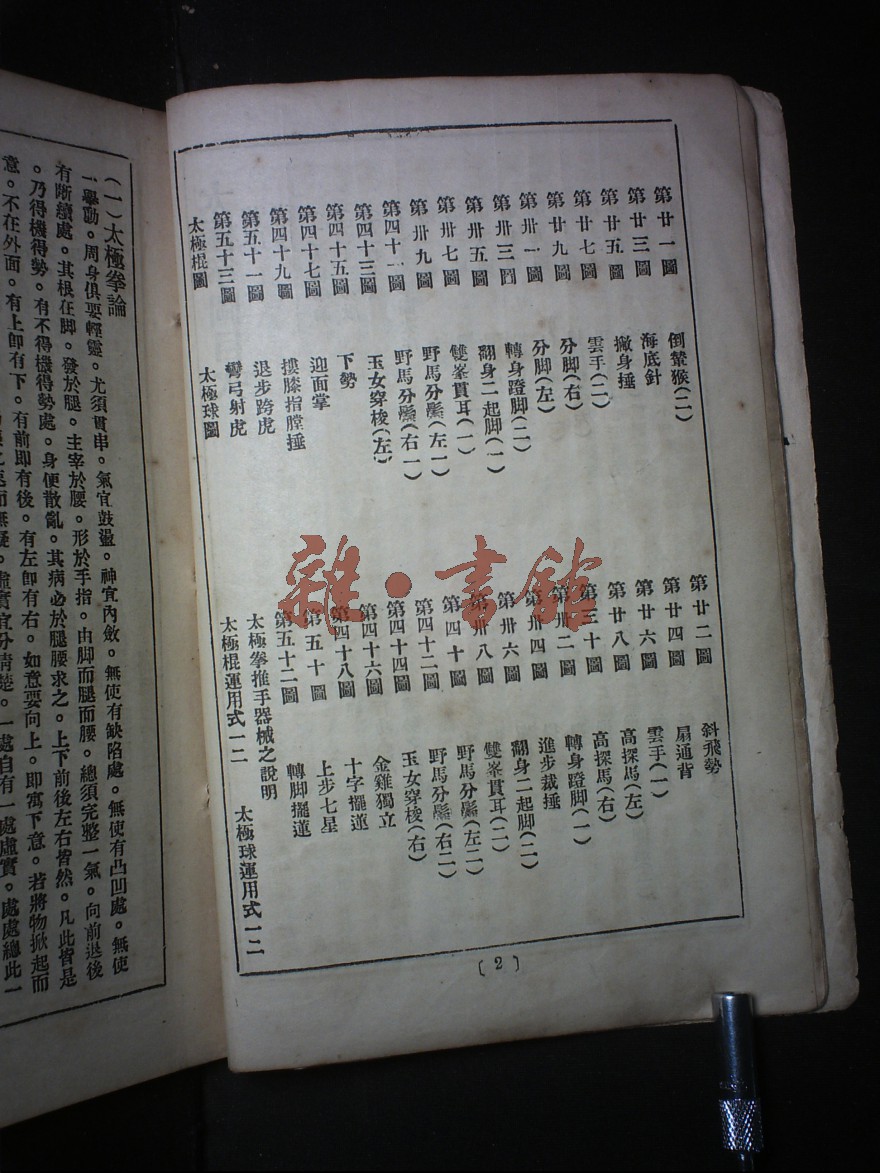 第廿一圖 倒輦猴(二) 第廿二圖 斜飛勢
第廿三圖 海底針 第廿四圖 扇通背
第廿五圖 撇身捶 第廿六圖 雲手(一)
第廿七圖 雲手(二) 第廿八圖 高探馬(左)
第廿九圖 分脚(右) 第三十圖 高探馬(右)
第卅一圖 分脚(左) 第卅二圖 轉身蹬脚(一)
第卅三圖 轉身蹬脚(二) 第卅四圖 進步裁捶
第卅五圖 翻身二起脚(一) 第卅六圖 翻身二起脚(二)
第卅七圖 雙峯貫耳(一) 第卅八圖 雙峯貫耳(二)
第卅九圖 野馬分鬃(左一) 第四十圖 野馬分鬃(左二)
第四十一圖 野馬分鬃(右一) 第四十二圖 野馬分鬃(右二)
第四十三圖 玉女穿梭(左) 第四十四圖 玉女穿梭(右)
第四十五圖 下勢 第四十六圖 金雞獨立
第四十七圖 迎面掌 第四十八圖 十字擺蓮
第四十九圖 摟膝指膛捶 第五十圖 上步七星
第五十一圖 退步跨虎 第五十二圖 轉脚擺蓮
第五十三圖 彎弓射虎 太極拳推手器械之說明
太極棍圖 太極球圖 太極棍運用式一二 太極球運用式一二
(2)
雜·書館
(一)太極拳論
一舉動。周身俱要輕靈。尤須貫串。氣宜鼓盪。神宜內斂。無使有缺陷處。無使有凸凹處。無使
有斷續處。其根在脚。發於腿。主宰於腰。形於手指。由脚而腿而腰。總須完整一氣。向前退後
。乃得機得勢。有不得機得勢處。身便散亂。其病必於腿腰求之。上下前後左右皆然。凡此皆是
意。不在外面。有上卽有下。有前卽有後。有左卽有右。如意要向上。卽寓下意。若將物掀起而
而無疑。虛實宜分淸楚。一處自有一處虛實。處處總此一